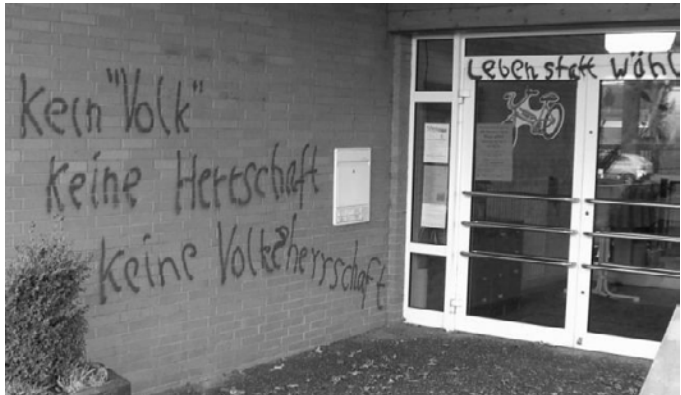 Kein "Volk"
keine Herrschaft
keine Volksherrschaft
Leben statt Wähl